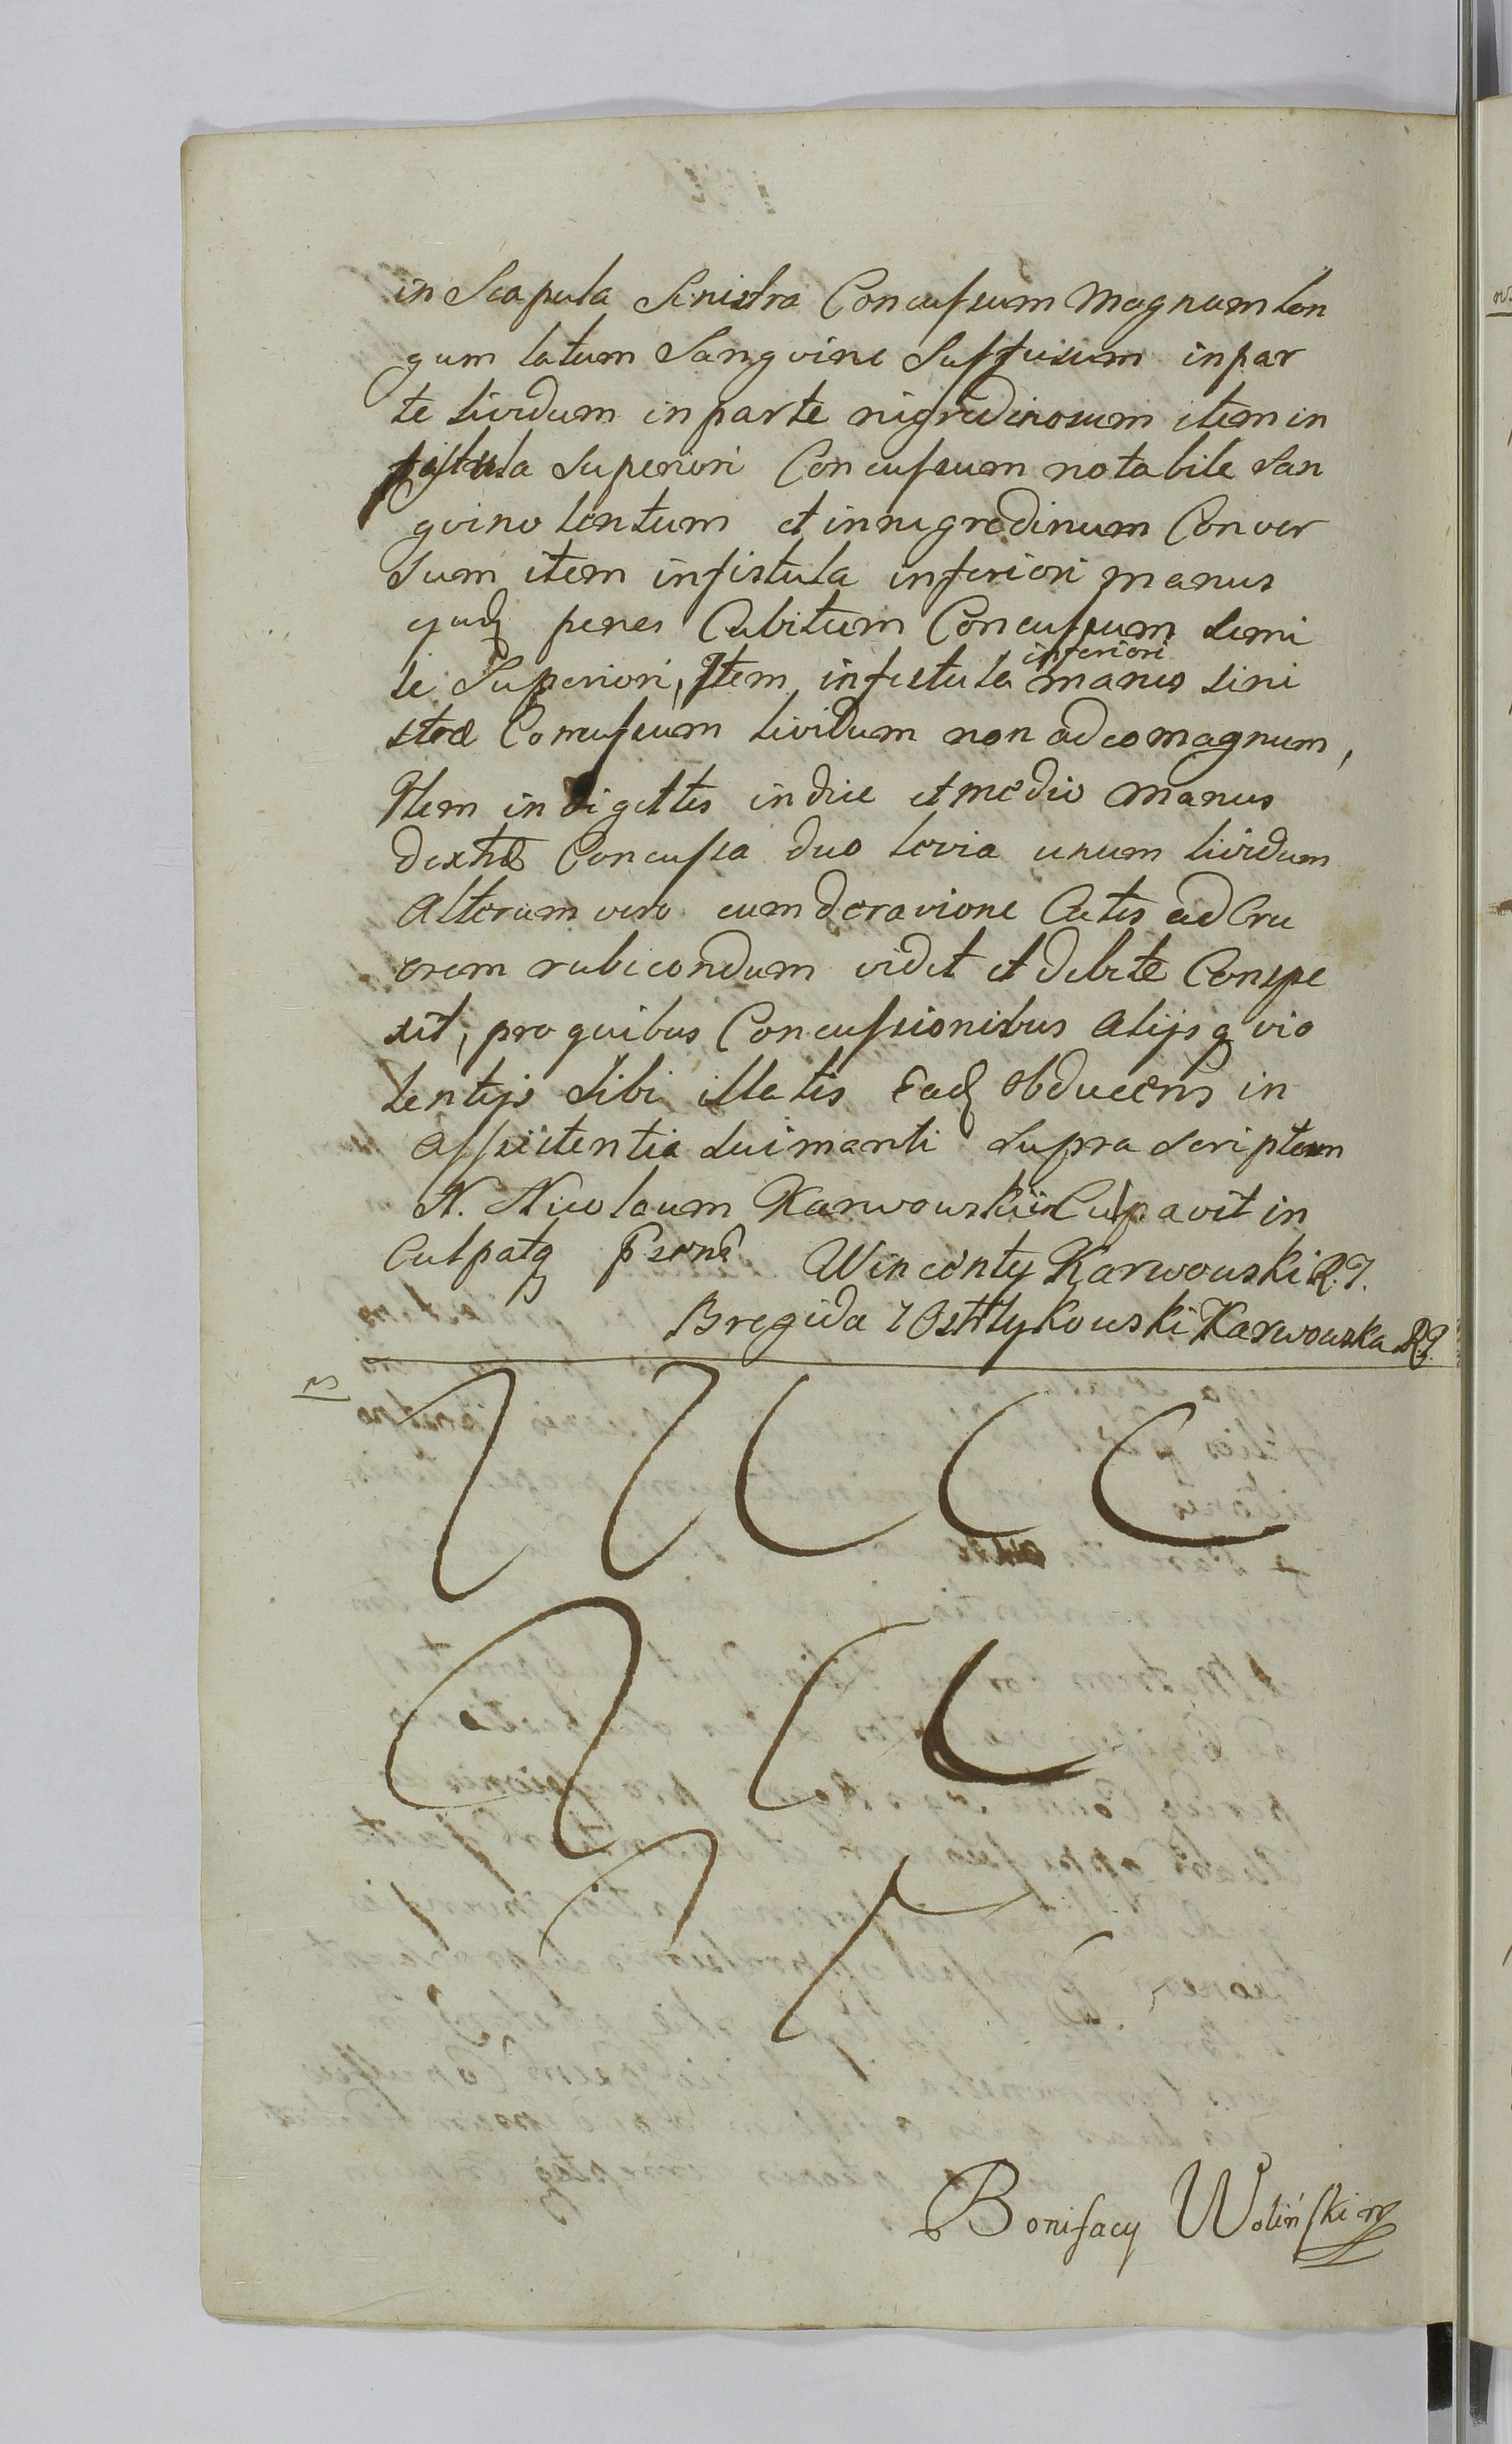 in Scapula Sinistra Concussum Magnum lon
gum latum Sangvine Suffusum in par
te lividum in parte nigredinosum item in
fistula Superiori Concussum notabile San
gvino lentum et in nigredinum Conver
sum item in fistula inferiori manus
ejusd penes Cubitum Concussum simi
le Superiori, Item in fistula inferiori manus sini
strae Concussum lividum non adeo magnum,
Item in digittis indice et medio manus
dextrae Concussa duo levia unum lividum
alterum vero cum deravione Cutis ad Cru
orem rubicondum vidit et debite Conspe
xit, pro quibus Concussionibus alijsq vio
lentijs sibi illatis Ead obducens in
assistentia sui mariti supra scriptum
N. Nicolaum Karwowskii Culpavit in
Culpatq psona Wincenty Karwowski
Bregida z Osttlykowski Karwowska
Bonifacy Woliński